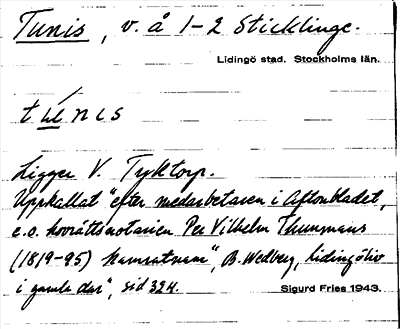 Tunis, v. å 1-2 Sticklinge.
Lidingö stad. Stockholms län.
túnis
Ligger V. Tyktorp.
Uppkallat "efter medarbetaren i Aftonbladet,
e.o. hovrättsnotarien Per Vilhelm Thunmans
(1819-95) kamratnamn", B. Wedberg, Lidingöliv
i gamla dar", sid 324.
Sigurd Fries 1943.